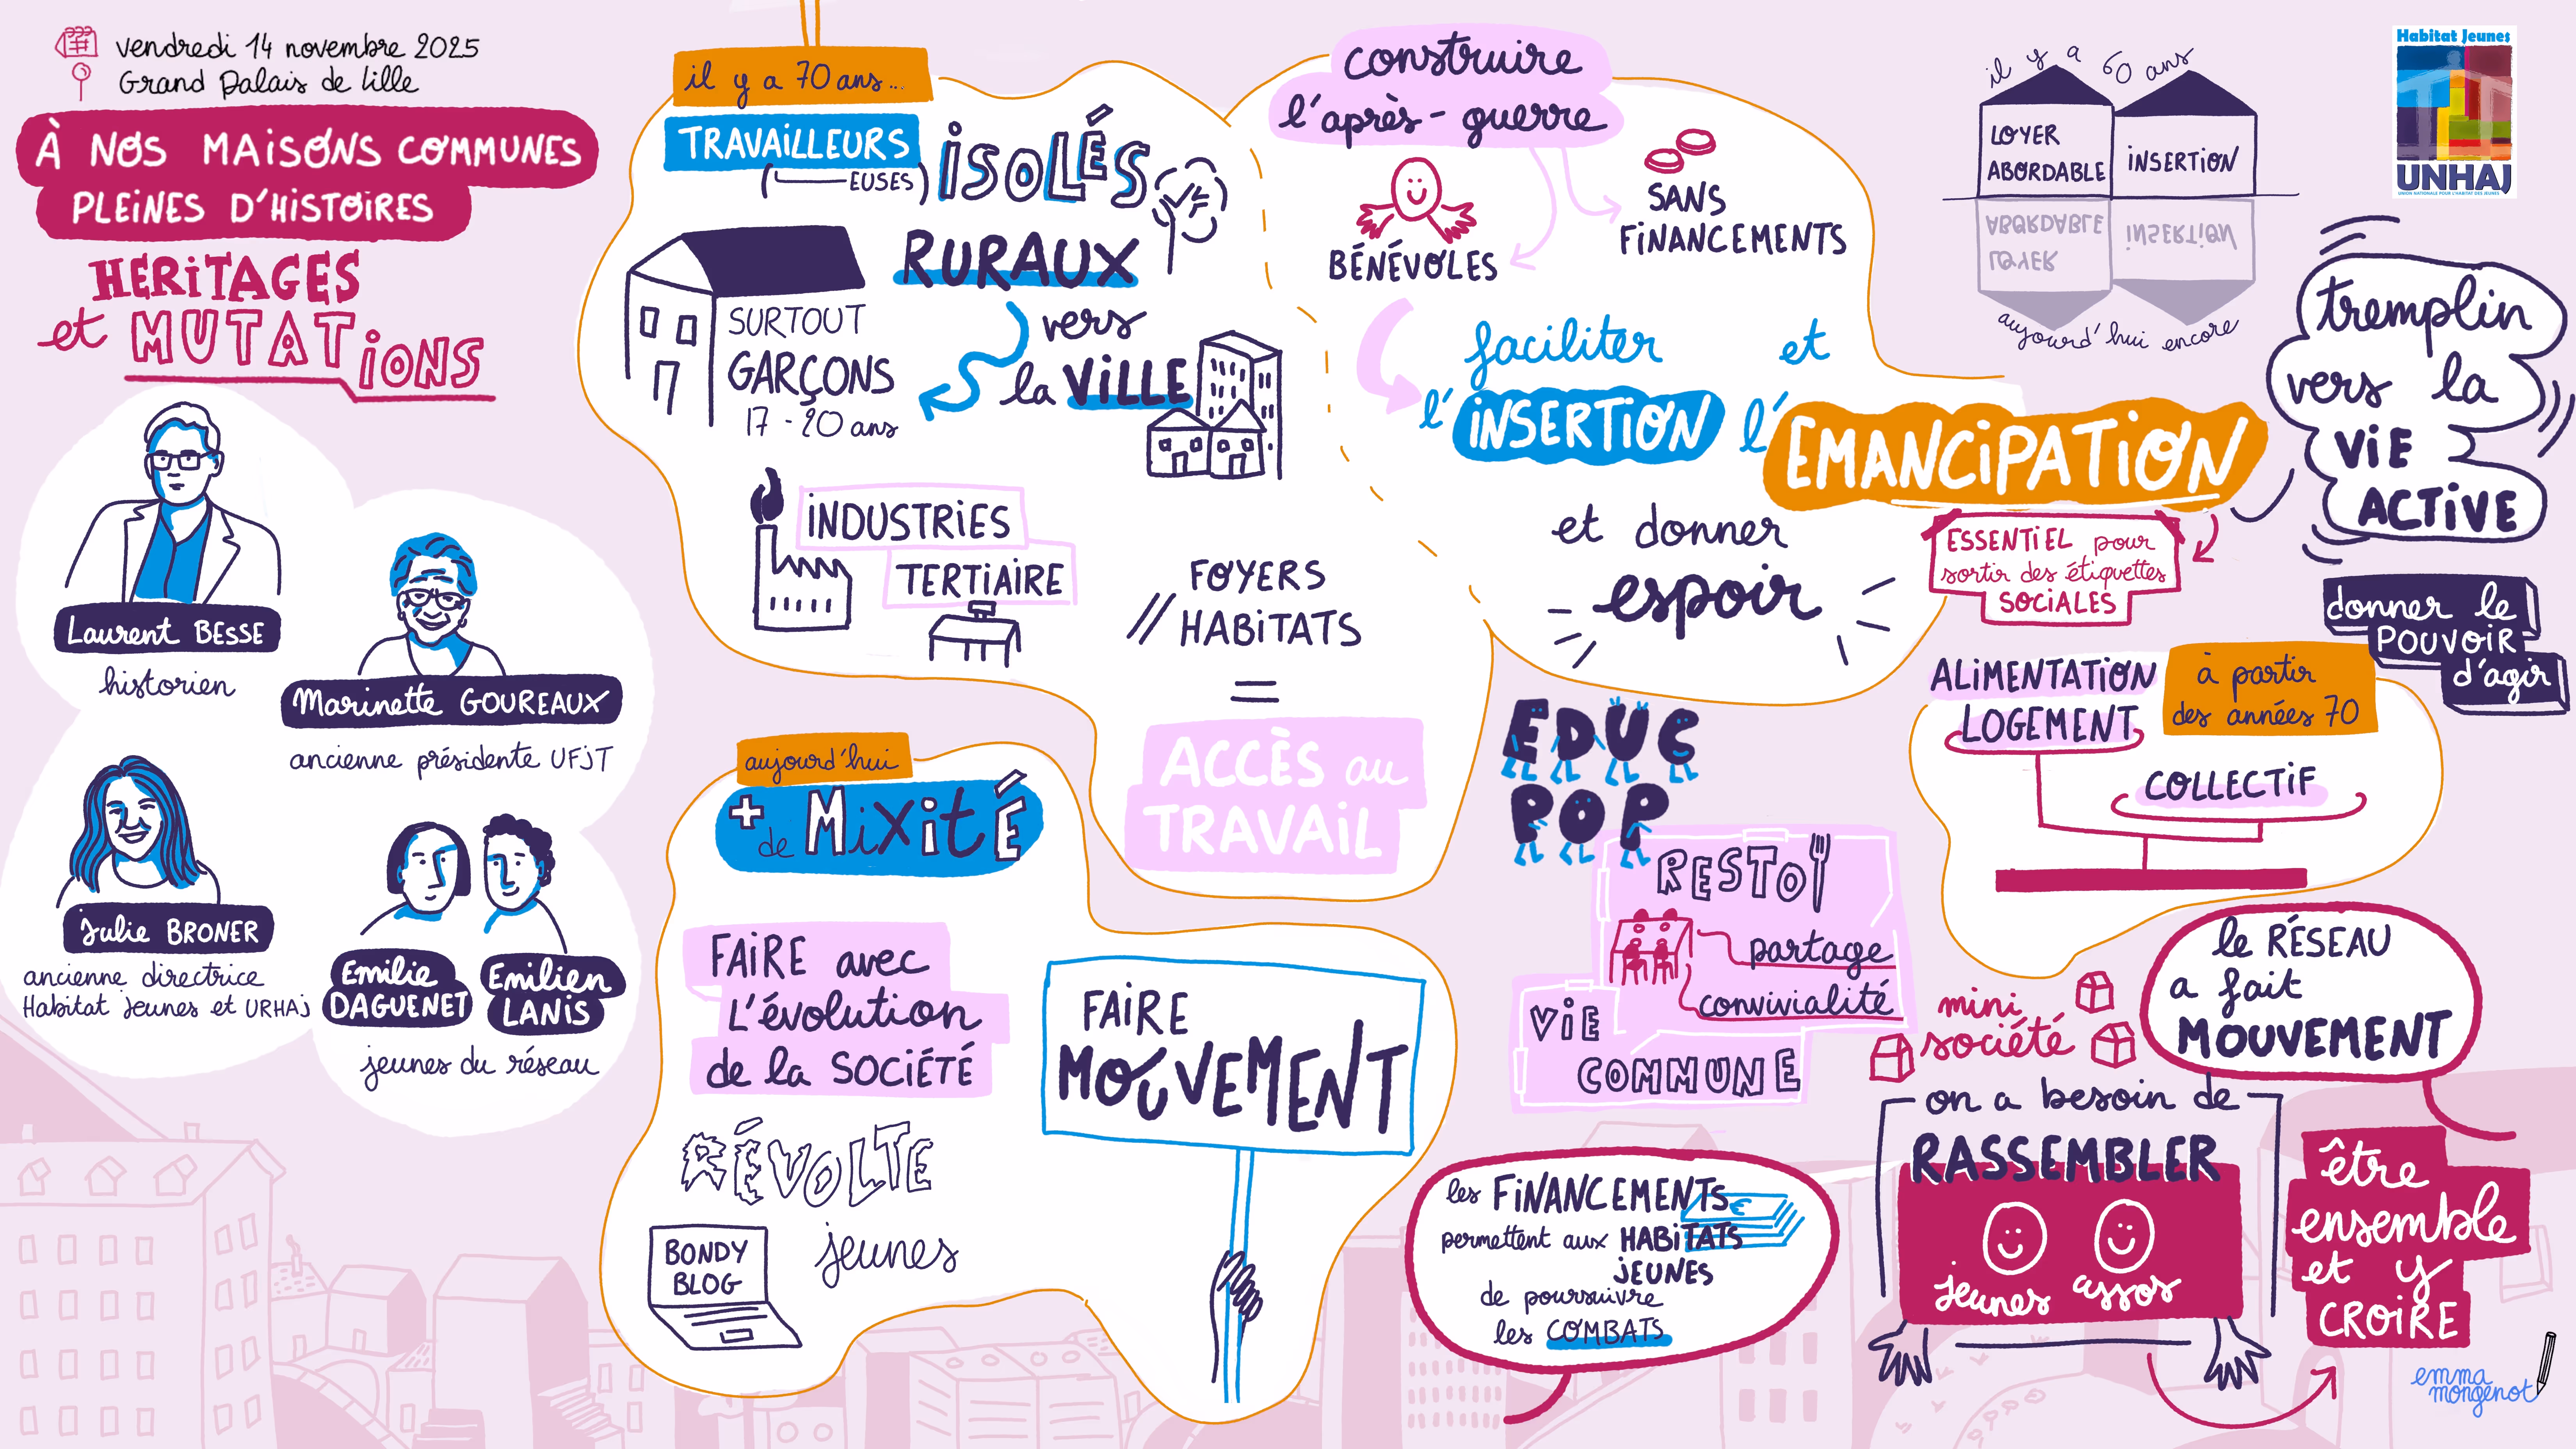 vendredi 14 novembre 2025
Grand Palais de Lille
À NOS MAISONS COMMUNES
PLEINES D'HISTOIRES
HERITAGES
et MUTATIONS
Laurent BESSE
historien
Marinette GOUREAUX
ancienne présidente UFJT
Julie BRONER
ancienne directrice
Habitat Jeunes et URHAJ
Emilie
DAGUENET
Emilien
LANIS
jeunes du réseau
il y a 70 ans...
TRAVAILLEURS
(EUSES)
ISOLÉS
RURAUX
vers
la VILLE
SURTOUT
GARÇONS
17 - 20 ans
INDUSTRIES
TERTIAIRE
// FOYERS
HABITATS
=
ACCÈS au
TRAVAIL
construire
l'après-guerre
BÉNÉVOLES
SANS
FINANCEMENTS
faciliter et
l'INSERTION l'EMANCIPATION
et donner
espoir
il y a 60 ans
LOYER
ABORDABLE
INSERTION
ABORDABLE
LOYER
INSERTION
aujourd'hui encore
Habitat Jeunes
UNHAJ
UNION NATIONALE POUR L'HABITAT DES JEUNES
tremplin
vers la
VIE
ACTIVE
ESSENTIEL pour
sortir des étiquettes
SOCIALES
donner le
POUVOIR
d'agir
à partir
des années 70
ALIMENTATION
LOGEMENT
COLLECTIF
EDUC
POP
RESTO
partage
convivialité
VIE
COMMUNE
aujourd'hui
+ de MIXITÉ
FAIRE avec
L'évolution
de la SOCIÉTÉ
RÉVOLTE
jeunes
BONDY
BLOG
FAIRE
MOUVEMENT
les FINANCEMENTS
permettent aux HABITATS
JEUNES
de poursuivre
les COMBATS
mini
société
le RÉSEAU
a fait
MOUVEMENT
on a besoin de
RASSEMBLER
jeunes assos
être
ensemble
et y
CROIRE
emma
mongenot